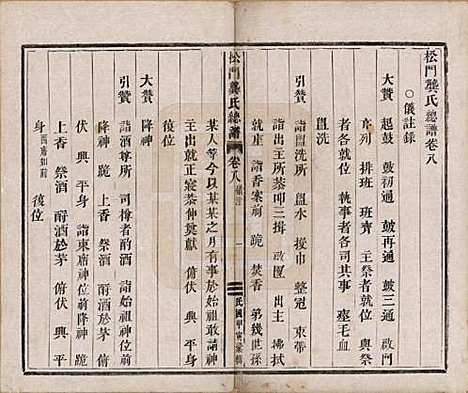 松門龔氏總譜卷八
○儀註錄
大贊 起鼓 鼓初通 鼓再通 鼓三通 啟門
序列 排班 班齊 主祭者就位 與祭
者各就位 執事者各司其事 瘞毛血
盥洗
引贊 詣盥洗所 盥水 授巾 整冠 束帶
詣出主所恭叩三揖 啟匣 出主 拂拭
就座 詣香案前 跪 焚香 第幾世孫
松門龔氏總譜 卷八 儀註 一
某人等今以某某之月有事於始祖敢請神
主出就正寢恭伸奠獻 俯伏 興 平身
復位
大贊 降神
引贊 詣酒尊所 司樽者酌酒 詣始祖神位前
降神 跪 上香 祭酒 酹酒於茅 俯
伏 興 平身 詣東廂神位前降神 跪
上香 祭酒 酹酒於茅 俯伏 興 平
身 復位